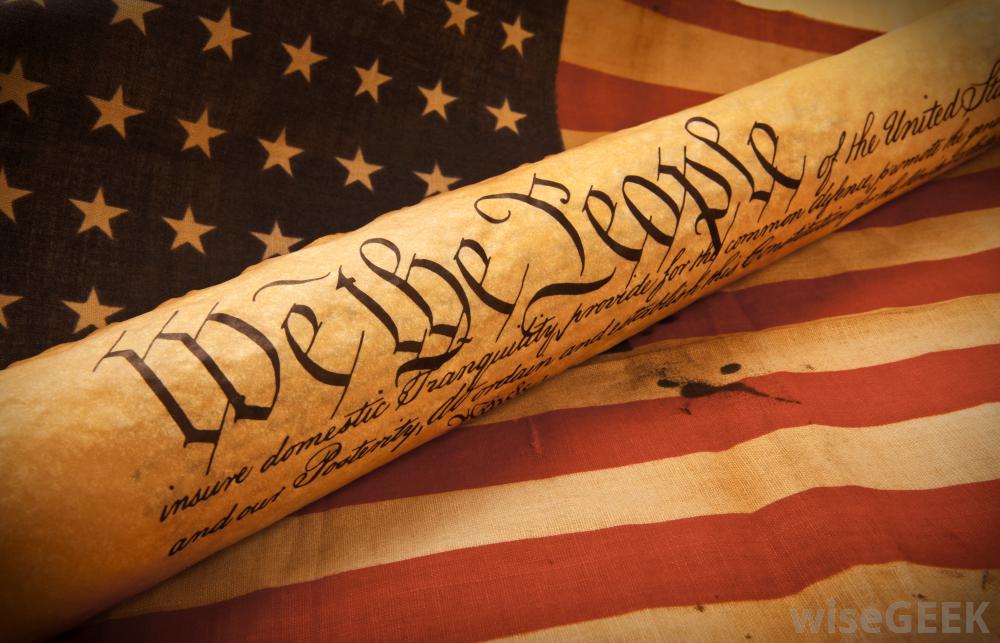 We the People of the United Sta
insure domestic Tranquility, provide for the common defence, promote the gene
and our Posterity, do ordain and establish this Constitution for the United
wiseGEEK